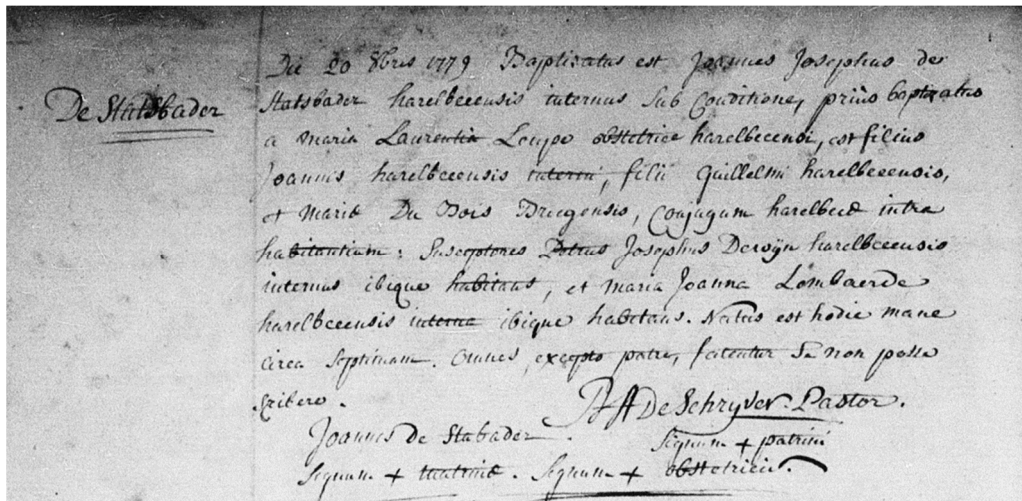 De Statsbader
Die 20 8bris 1779 Baptisatus est Joannes Josephus de
Statsbader harelbecensis internus sub conditione, prius baptisatus
a maria Laurentia Loupe obstetrice harelbecensi, est filius
Joannis harelbecensis interni, filii Guillelmi harelbecensis,
et mariæ Du Bois Brugensis, conjugum harelbecæ intra
habitantium: susceptores Petrus Josephus Dewijn harelbecensis
internus ibique habitans, et maria Joanna Lombaerde
harelbecensis interna ibique habitans. Natus est hodie mane
circa septimam. omnes, excepto patre, fatentur se non posse
scribere.
De Schryver. Pastor.
Joannes de Stabader. Signum + patrini
Signum + matrinæ. Signum + obstetricis.